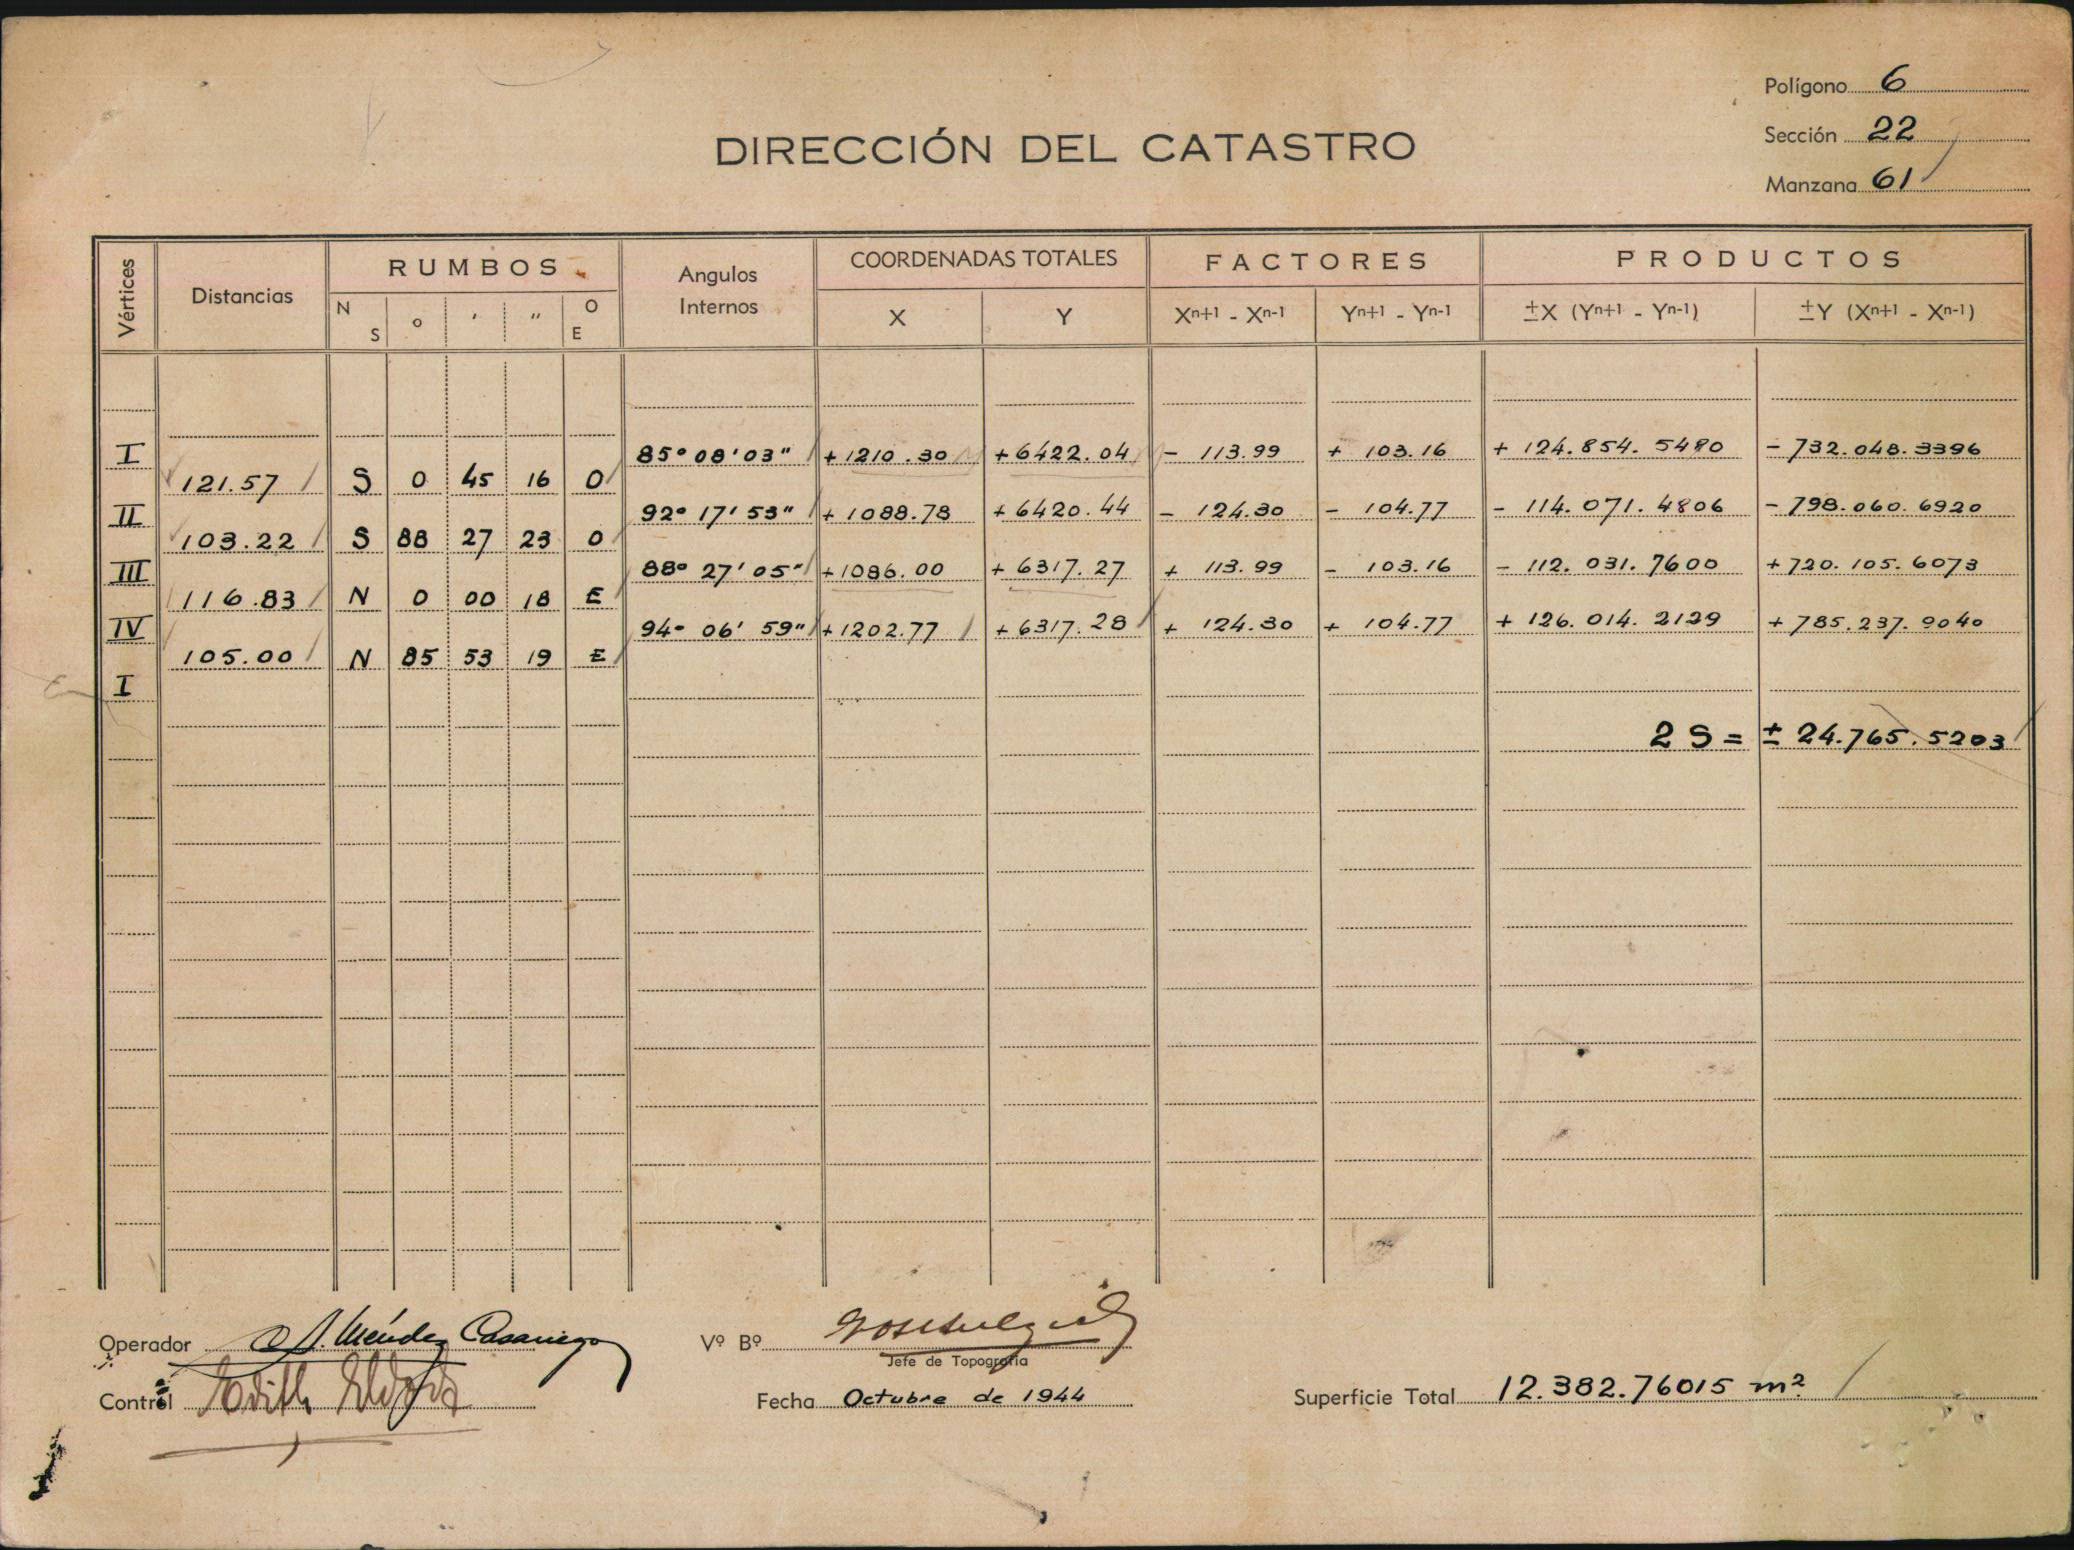 Polígono 6
DIRECCIÓN DEL CATASTRO
Sección 22
Manzana 61
Vértices Distancias RUMBOS Angulos Internos COORDENADAS TOTALES FACTORES PRODUCTOS
N S o ' " O E X Y Xn+1 - Xn-1 Yn+1 - Yn-1 ±X (Yn+1 - Yn-1) ±Y (Xn+1 - Xn-1)
I 85° 08' 03" +1210.30 +6422.04 - 113.99 + 103.16 + 124.854.5480 - 732.048.3396
121.57 S 0 45 16 O
II 92° 17' 53" +1088.78 +6420.44 - 124.30 - 104.77 - 114.071.4806 - 798.060.6920
103.22 S 88 27 23 O
III 88° 27' 05" +1086.00 +6317.27 + 113.99 - 103.16 - 112.031.7600 +720.105.6073
116.83 N 0 00 18 E
IV 94° 06' 59" +1202.77 +6317.28 + 124.30 + 104.77 + 126.014.2129 + 785.237.9040
105.00 N 85 53 19 E
I
2 S = ± 24.765.5203
Operador J. Méndez Casariego
Vº Bº
Jefe de Topografía
Control Edith
Fecha Octubre de 1944
Superficie Total 12.382.76015 m²